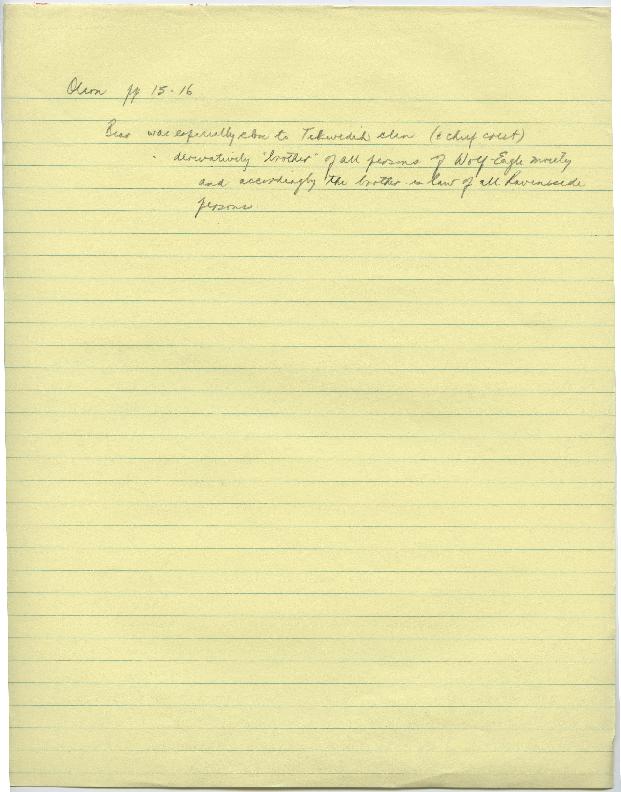 Olson pp 15-16
Bear was especially close to Tekwedih clan (& chief crest)
. derivatively "brother" of all persons of Wolf-Eagle moiety
and accordingly the brother-in-law of all Ravenside
persons